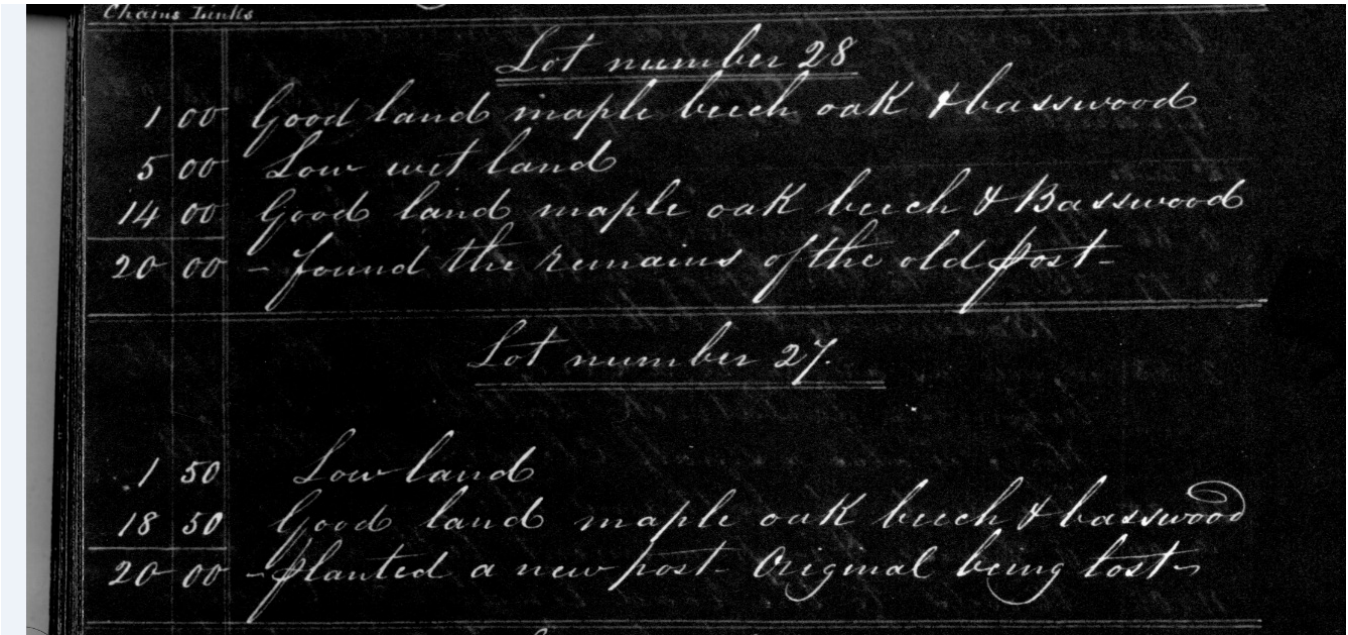 Chains Links
Lot number 28
1 00 Good land maple beech oak & basswood
5 00 Low wet land
14 00 Good land maple oak beech & Basswood
20 00 - found the remains of the old post -
Lot number 27.
1 50 Low land
18 50 Good land maple oak beech & basswood
20 00 - planted a new post - Original being lost -